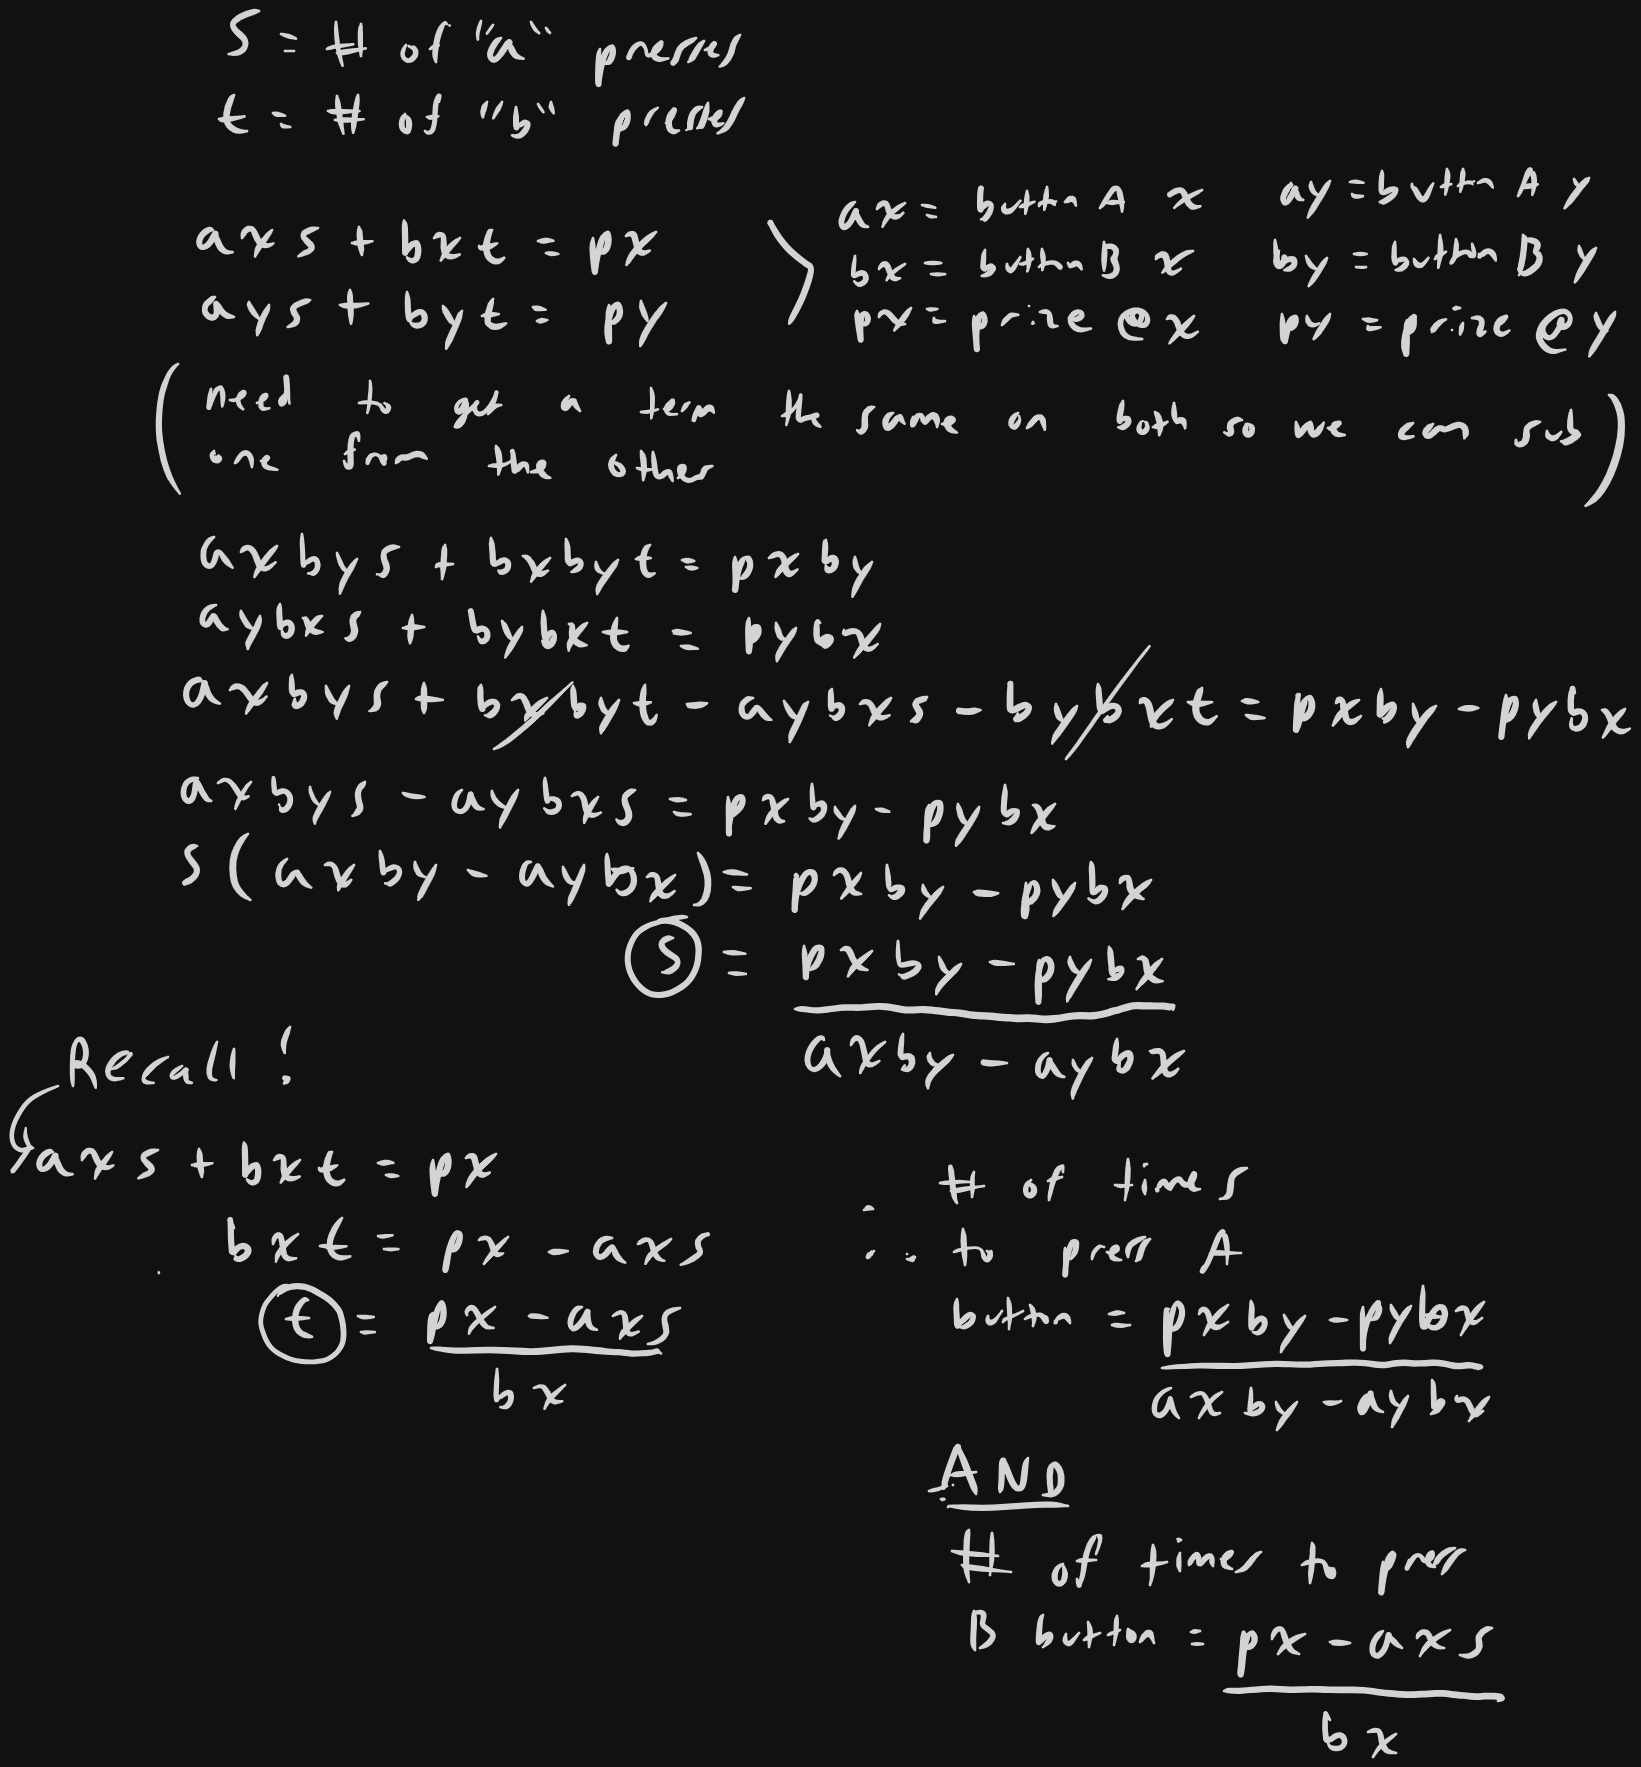 S = # of "a" presses
t = # of "b" presses
axs + bxt = px
ays + byt = py
ax = button A x ay = button A y
bx = button B x by = button B y
px = prize @ x py = prize @ y
(need to get a term the same on both so we can sub
one from the other)
axbys + bxbyt = pxby
aybxs + bybxt = pybx
axbys + bxbyt - aybxs - bybxt = pxby - pybx
axbys - aybxs = pxby - pybx
s(axby - aybx) = pxby - pybx
S = pxby - pybx
axby - aybx
Recall!
axs + bxt = px
bxt = px - axs
t = px - axs
bx
∴ # of times
to press A
button = pxby - pybx
axby - aybx
AND
# of times to press
B button = px - axs
bx